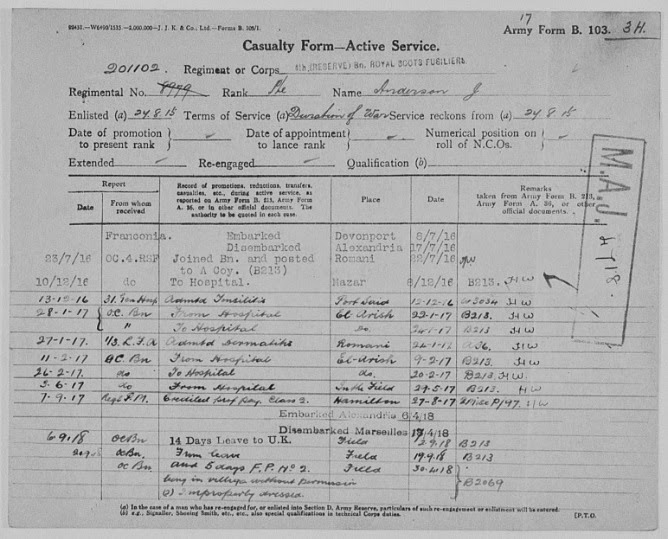 17
Army Form B. 103. 3H.
Casualty Form—Active Service.
201102. Regiment or Corps (RESERVE) Bn. ROYAL SCOTS FUSILIERS
Regimental No. 8979 Rank Pte Name Anderson J
Enlisted (a) 24.8.15 Terms of Service (a) Duration of War Service reckons from (a) 24.8.15
Date of promotion to present rank
Date of appointment to lance rank
Numerical position on roll of N.C.Os.
Extended Re-engaged Qualification (b)
M.A.J.
Report
Date
From whom received
Record of promotions, reductions, transfers, casualties, etc., during active service, as reported on Army Form B. 213, Army Form A. 36, or in other official documents. The authority to be quoted in each case.
Place
Date
Remarks
taken from Army Form B. 213, Army Form A. 36, or other official documents.
Franconia. Embarked Devonport 8/7/16
Disembarked Alexandria 17/7/16
23/7/16 OC.4.RSF Joined Bn. and posted to A Coy. (B213) Romani 22/7/16
10/12/16 do To Hospital. Mazar 8/12/16 B213. HW
13-12-16 31. Gen Hosp Admtd Tonsilitis Port Said 12-12-16 HW
28-1-17 O.C. Bn From Hospital El Arish 22-1-17 B213. HW
" To Hospital do. 24-1-17 B213 HW
27-1-17. 1/3. L.F.A Admtd Dermatitis Romani 24-1-17 A36. HW
11-2-17 O.C. Bn From Hospital El-Arish 9-2-17 B213. HW
26-2-17. do To Hospital do. 20-2-17 B213. HW
3-6-17 do From Hospital In the Field 29-5-17 B213. HW
7-9-17 Regtl P.M. Credited Prof Pay. Class 2. Hamilton 27-8-17 HW
Embarked Alexandria 6/4/18
Disembarked Marseilles /4/18
6/9/18 OC Bn 14 Days Leave to U.K. Field 2.9.18 B213
OC Bn. From leave Field 19.9.18 B213
OC Bn Awd 5 days F.P. No 2. Field 30.4.18 B2069
being in village without permission
(2) Improperly dressed
(a) In the case of a man who has re-engaged for, or enlisted into Section D. Army Reserve, particulars of such re-engagement or enlistment will be entered.
(b) e.g., Signaller, Shoeing Smith, etc., etc., also special qualifications in technical Corps duties.
[P.T.O.